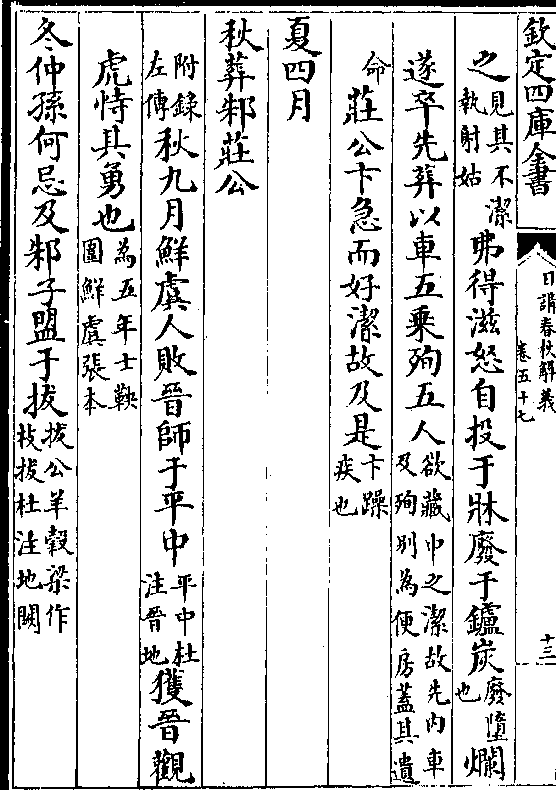 欽定四庫全書
日講春秋解義
卷五十七
十三
之
見其不潔
執射姑
弗得滋怒自投于牀廢于鑪炭
廢墮
也
爛
遂卒先葬以車五乘殉五人
欲藏中之潔故先內車
及殉別為便房蓋其遺
命
莊公卞急而好潔故及是
卞躁
疾也
夏四月
秋葬邾莊公
附錄
左傳
秋九月鮮虞人敗晉師于平中
平中杜
注晉地
獲晉觀
虎恃其勇也
為五年士鞅
圍鮮虞張本
冬仲孫何忌及邾子盟于拔
拔公羊穀梁作
枝拔杜注地闕